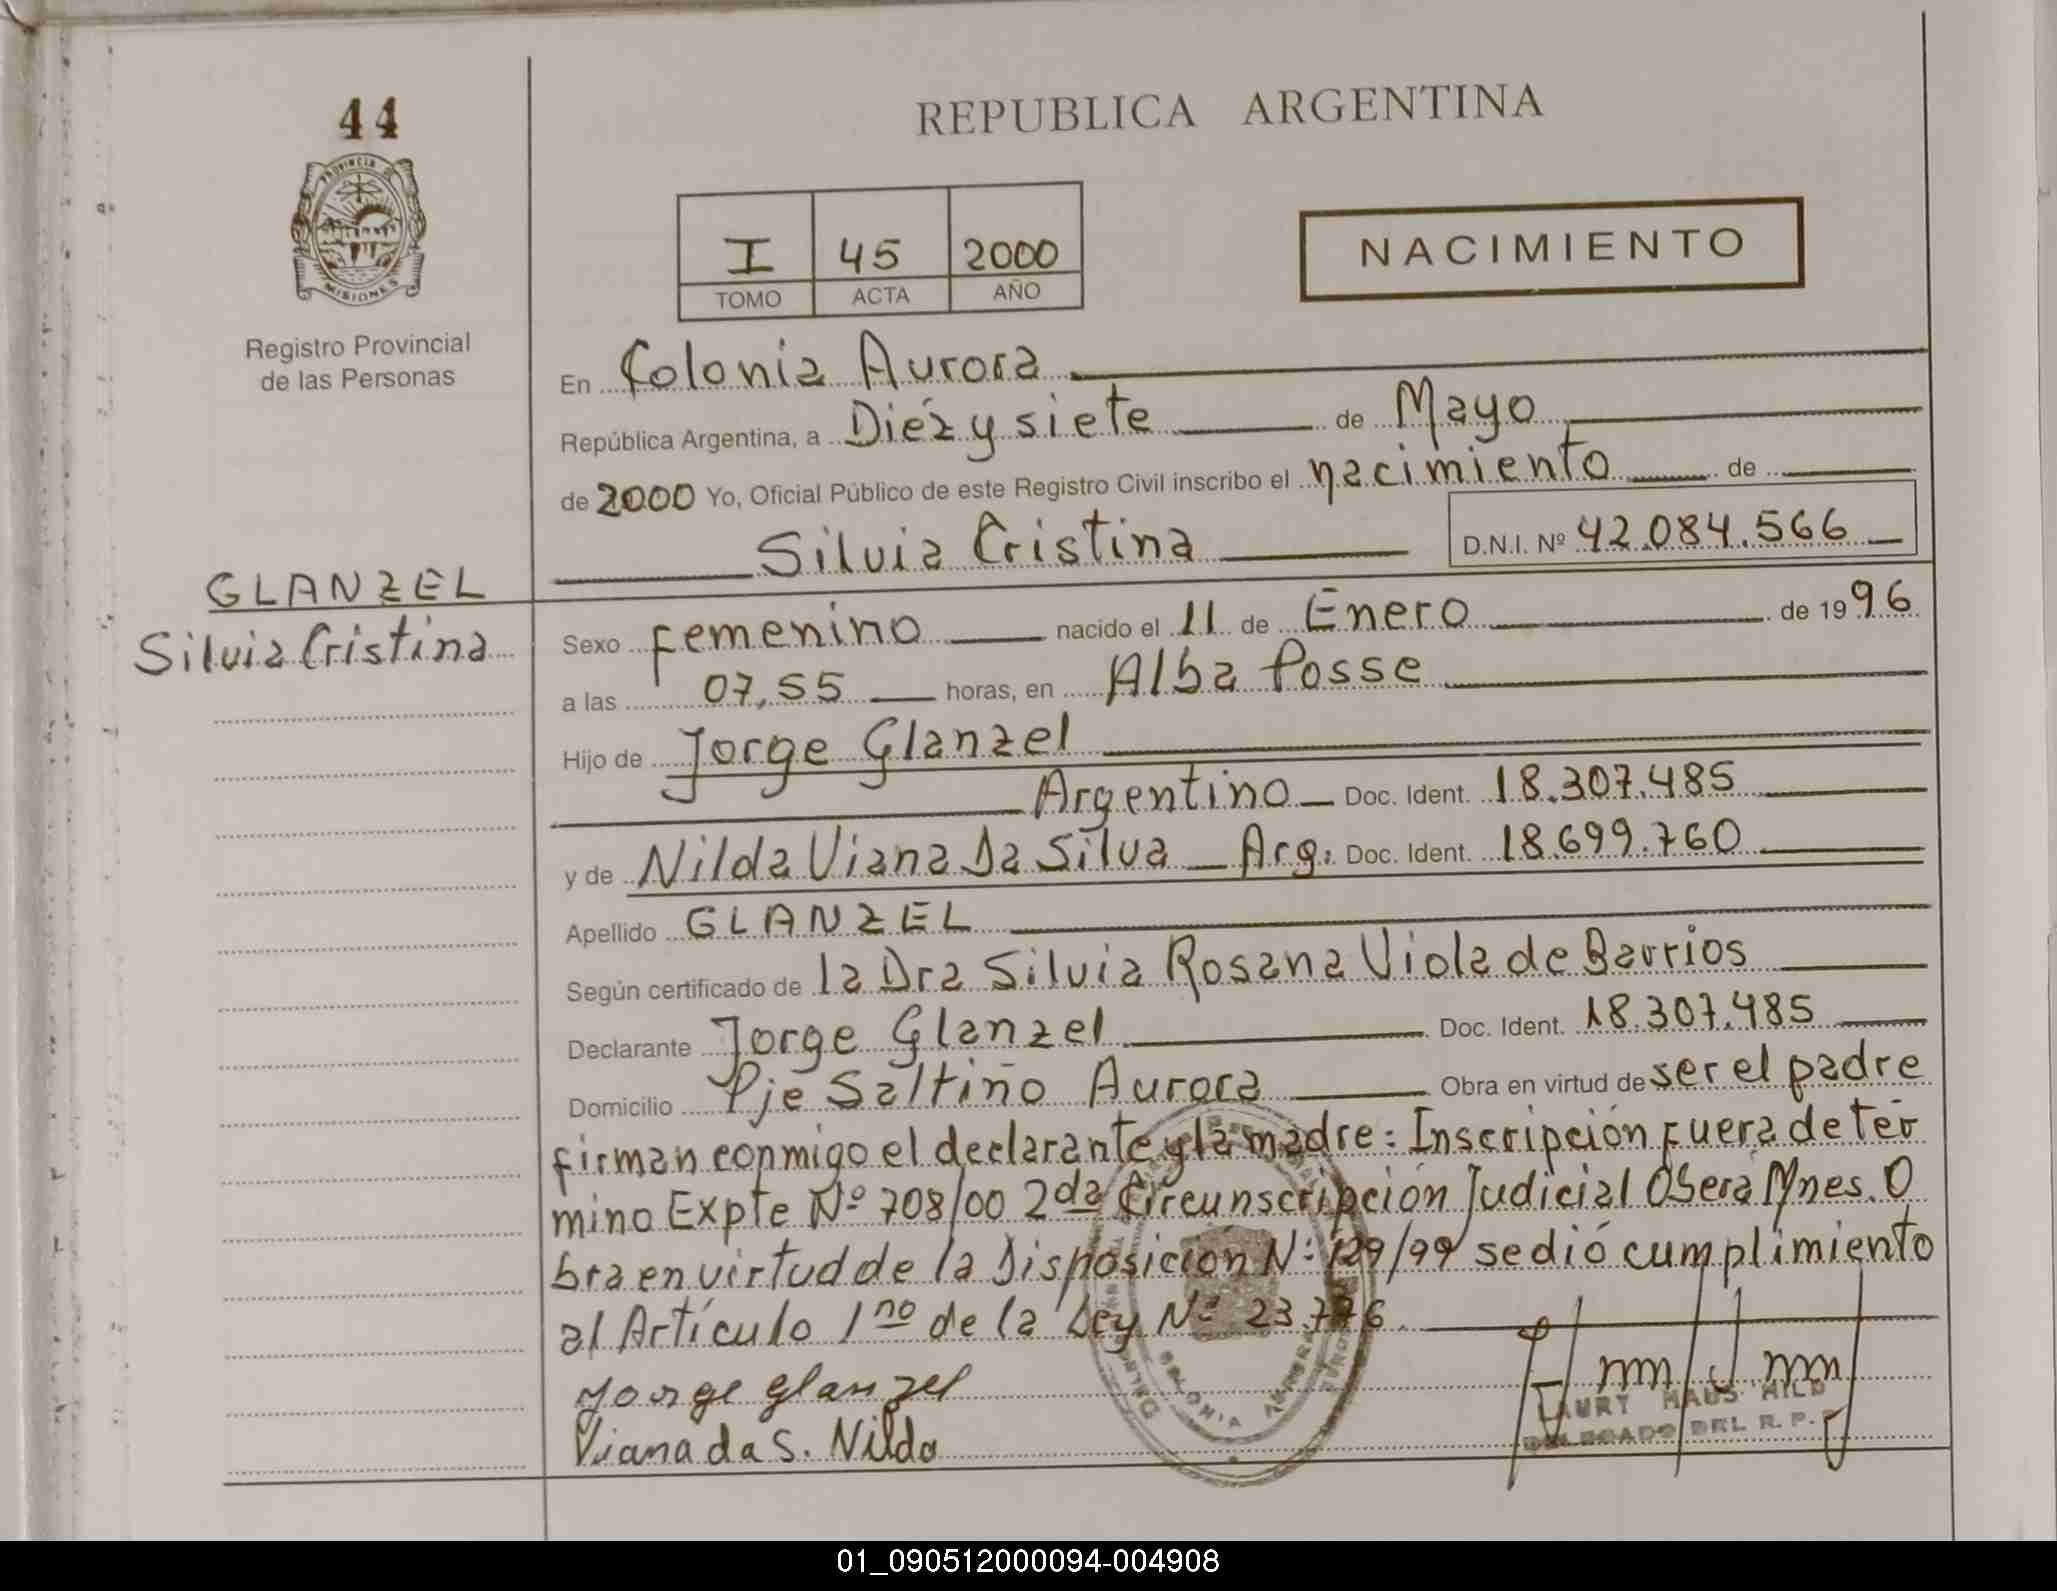 44
REPUBLICA ARGENTINA
PROVINCIA DE
MISIONES
Registro Provincial
de las Personas
I 45 2000
TOMO ACTA AÑO
NACIMIENTO
En Colonia Aurora
República Argentina, a Diéz y siete de Mayo
de 2000 Yo, Oficial Público de este Registro Civil inscribo el nacimiento de
Silvia Cristina D.N.I. Nº 42.084.566
GLANZEL
Silvia Cristina
Sexo Femenino nacido el 11 de Enero de 1996
a las 07,55 horas, en Alba Posse
Hijo de Jorge Glanzel
Argentino Doc. Ident. 18.307.485
y de Nilda Viana Da Silva Arg. Doc. Ident. 18.699.760
Apellido GLANZEL
Según certificado de la Dra Silvia Rosana Viola de Barrios
Declarante Jorge Glanzel Doc. Ident. 18.307.485
Domicilio Pje Saltiño Aurora Obra en virtud de ser el padre
firman conmigo el declarante y la madre: Inscripción Fuera de tér
mino Expte Nº 708/00 2da Circunscripción Judicial Oberá Mnes. O
bra en virtud de la Disposición Nº 129/99 se dió cumplimiento
al Artículo 1no de la Ley Nº 23.776
Jorge Glanzel
Viana da S. Nilda
COLONIA AURORA
HAUS HILD
DELEGADO DEL R. P.
01_090512000094-004908